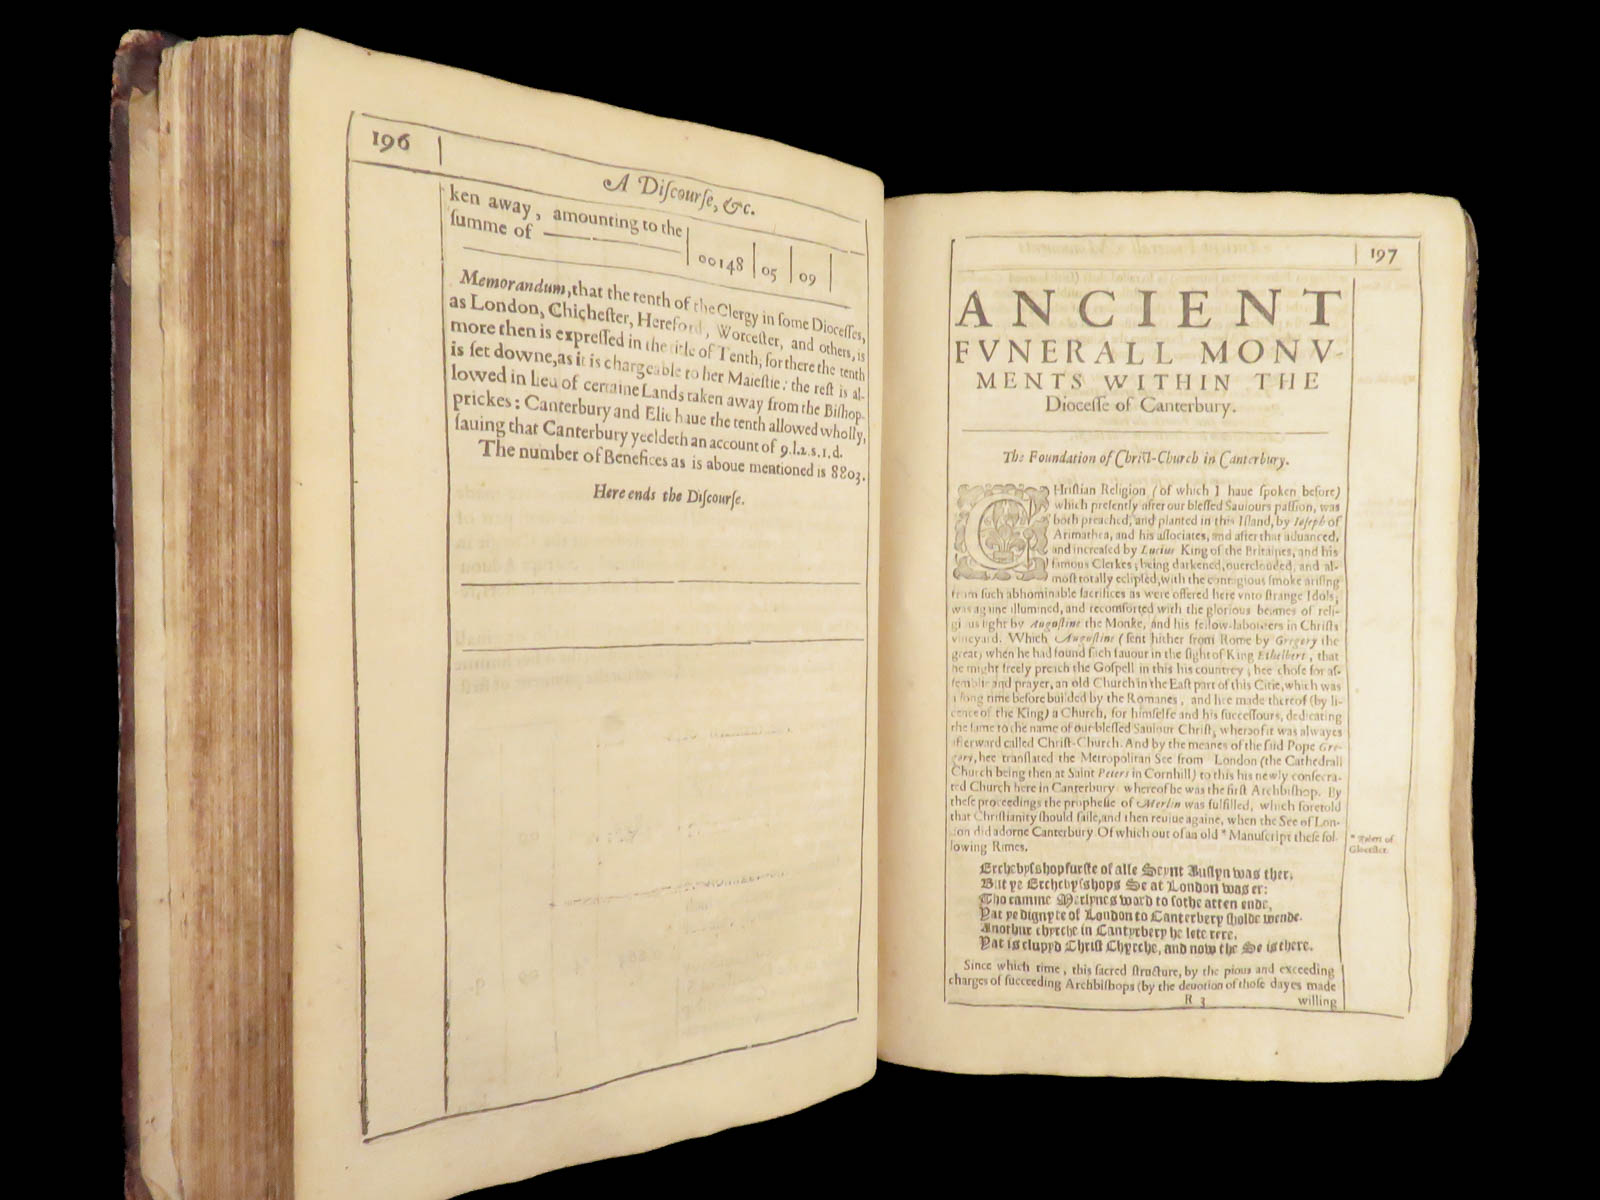 196
A Diſcourſe, &c.
ken away, amounting to the
ſumme of
00148 | 05 | 09
Memorandum, that the tenth of the Clergy in ſome Dioceſſes,
as London, Chicheſter, Hereford, Worceſter, and others, is
more then is expreſſed in the title of Tenth, for there the tenth
is ſet downe, as it is chargeable to her Maieſtie: the reſt is al-
lowed in Lieu of certaine Lands taken away from the Biſhop-
prickes: Canterbury and Elie haue the tenth allowed wholly,
ſauing that Canterbury yeeldeth an account of 9.l.2.s.1.d.
The number of Benefices as is aboue mentioned is 8803.
Here ends the Diſcourſe.
197
ANCIENT
FVNERALL MONV-
MENTS WITHIN THE
Dioceſſe of Canterbury.
The Foundation of Chriſt-Church in Canterbury.
CHriſtian Religion (of which I haue ſpoken before)
which preſently after our bleſſed Sauiours paſſion, was
both preached, and planted in this Iſland, by Ioſeph of
Arimathea, and his aſſociates, and after that aduanced,
and increaſed by Lucius King of the Britaines, and his
famous Clerkes; being darkened, ouerclouded, and al-
moſt totally eclipſed, with the contagious ſmoke ariſing
from ſuch abhominable ſacrifices as were offered here vnto ſtrange Idols;
was againe illumined, and recomforted with the glorious beames of reli-
gious light by Auguſtine the Monke, and his fellow-labourers in Chriſts
vineyard. Which Auguſtine (ſent hither from Rome by Gregory the
great) when he had found ſuch fauour in the ſight of King Ethelbert, that
he might freely preach the Goſpell in this his countrey, hee choſe for aſ-
ſemblie and prayer, an old Church in the Eaſt part of this Citie, which was
a long time before builded by the Romanes, and hee made thereof (by li-
cence of the King) a Church, for himſelfe and his ſucceſſours, dedicating
the ſame to the name of our bleſſed Sauiour Chriſt, whereof it was alwayes
afterward called Chriſt-Church. And by the meanes of the ſaid Pope Gre-
gory, hee tranſlated the Metropolitan See from London (the Cathedrall
Church being then at Saint Peters in Cornhill) to this his newly conſecra-
ted Church here in Canterbury whereof he was the firſt Archbiſhop. By
theſe proceedings the propheſie of Merlin was fulfilled, which foretold
that Chriſtianity ſhould faile, and then reuiue againe, when the See of Lon-
don did adorne Canterbury. Of which out of an old * Manuſcript theſe fol-
lowing Rimes.
* Robert of
Gloceſter.
Erchebyſshop furſte of alle Seynt Auſtyn was ther,
But ye Erchebyſshops Se at London was er:
Tho camme Merlynes word to ſothe atten ende,
Yat ye dignyte of London to Canterbery ſholde wende.
Anothur chyrche in Cantyrbery he lete rere,
Yat is cluppd Chriſt Chyrche, and now the Se is there.
Since which time, this ſacred ſtructure, by the pious and exceeding
charges of ſucceeding Archbiſhops (by the deuotion of thoſe dayes made
R 3
willing